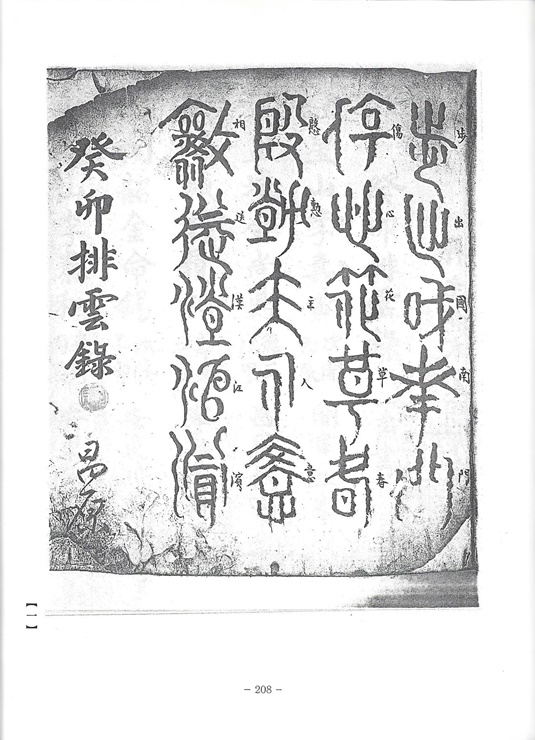 步出國南門
傷心花草春
慇懃主人意
相送漢江濱
癸卯排雲錄
昌
【一】
- 208 -